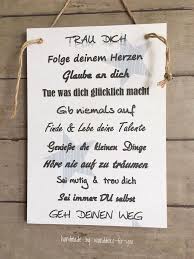 TRAU DICH
Folge deinem Herzen
Glaube an dich
Tue was dich glücklich macht
Gib niemals auf
Finde & Lebe deine Talente
Genieße die kleinen Dinge
Höre nie auf zu träumen
Sei mutig & treu dich
Sei immer DU selbst
GEH DEINEN WEG
handmade by